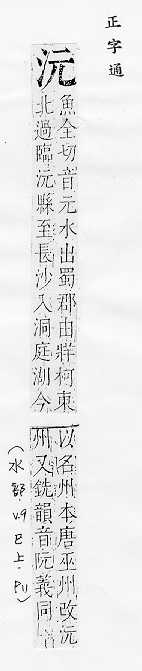 正字通
沅
魚全切音元水出蜀郡由牂柯東
北過臨沅縣至長沙入洞庭湖今
以名州本唐巫州改沅
州又銑韻音阮義同
(水部. V.9 巳上. P11)